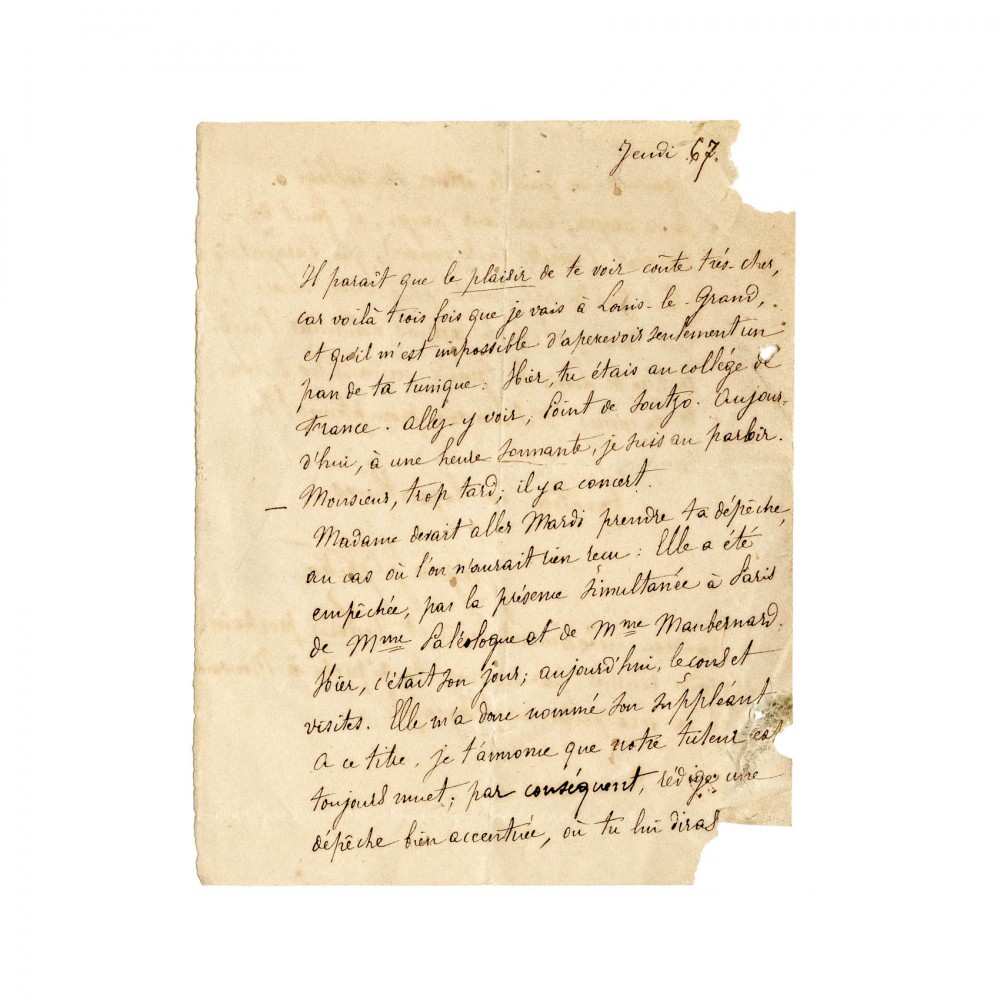 Jeudi 67.
Il paraît que le plaisir de te voir coûte très-cher,
car voilà trois fois que je vais à Louis-le-Grand,
et qu'il m'est impossible d'apercevoir seulement un
pan de ta tunique : Hier, tu étais au collége de
France. allez y voir; Point de Soutzo. Aujour-
d'hui, à une heure sonnante, je suis au parloir.
— Monsieur, trop tard; il y a concert.
Madame devait aller Mardi prendre ta dépêche,
au cas où l'on n'aurait rien reçu : Elle a été
empêchée, par la présence simultanée à Paris
de Mme Paléologue et de Mme Maubernard.
Hier, c'était son jour; aujourd'hui, leçons et
visites. Elle m'a donc nommé son suppléant
A ce titre, je t'annonce que notre tuteur est
toujours muet; par conséquent, rédige une
dépêche bien accentuée, où tu lui diras